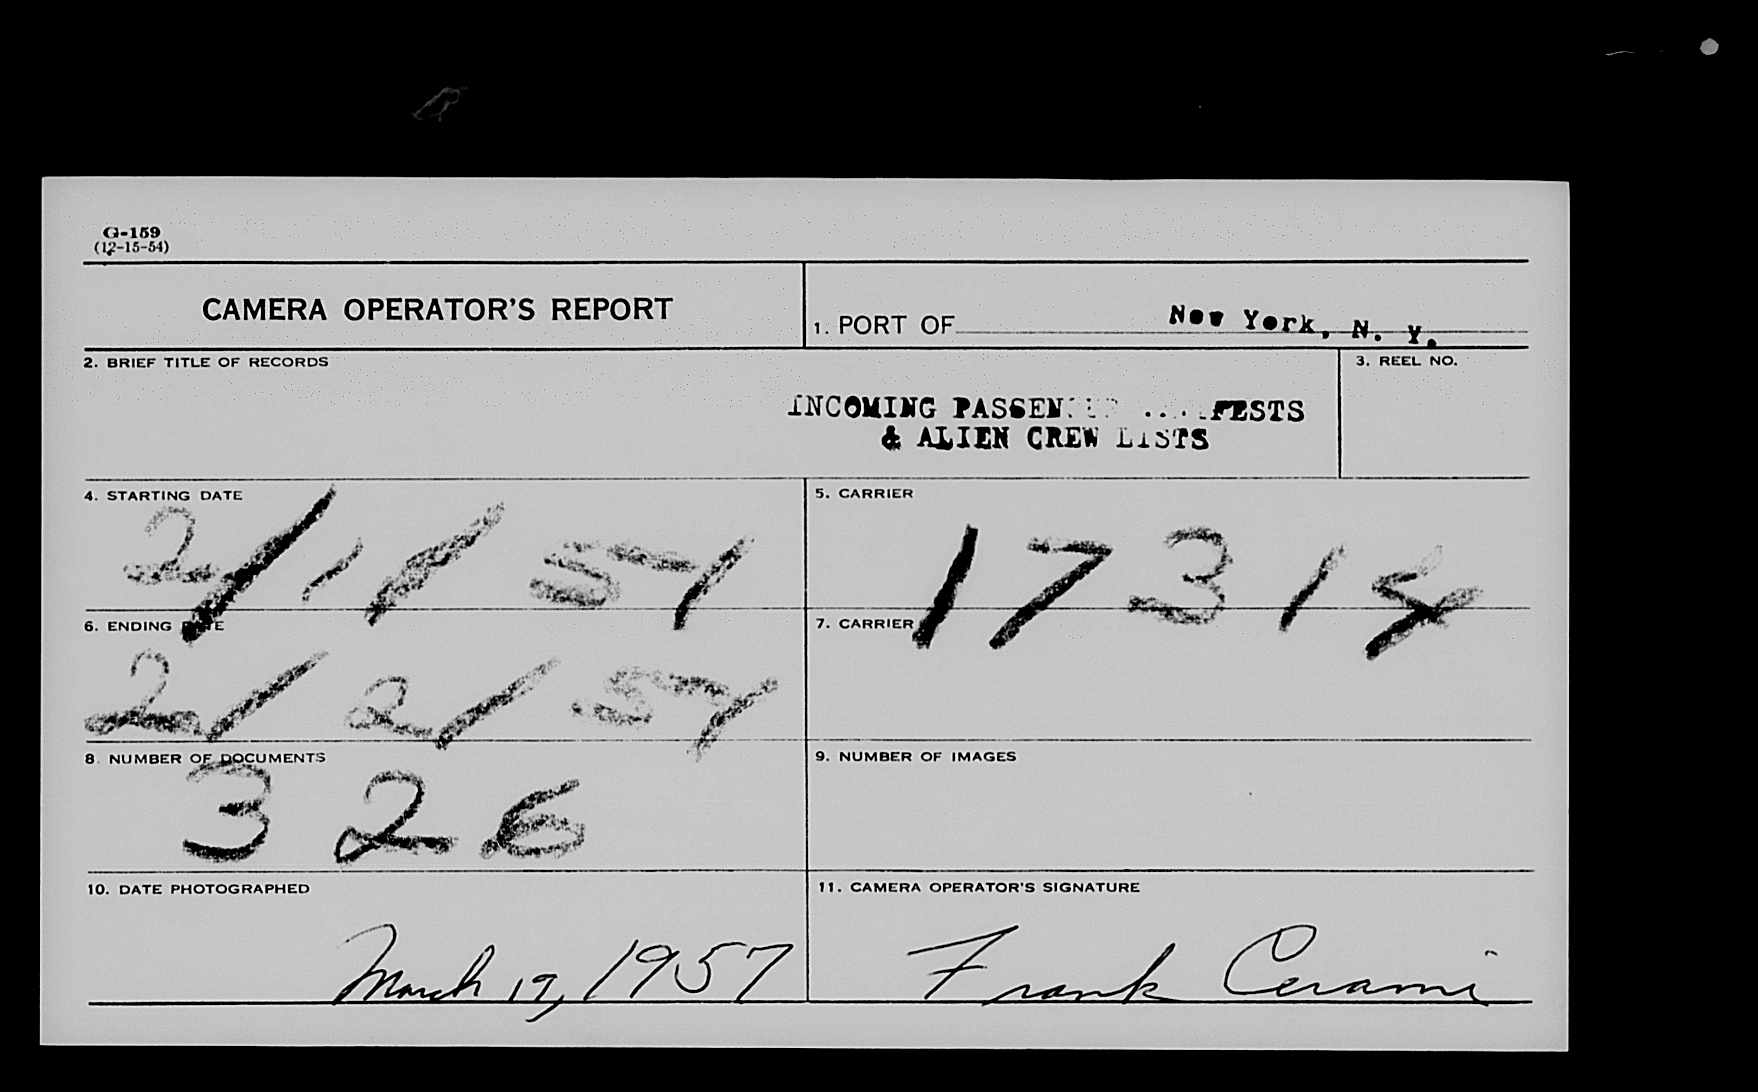 G-159
(12-15-54)
CAMERA OPERATOR'S REPORT
1. PORT OF New York, N. Y.
2. BRIEF TITLE OF RECORDS
3. REEL NO.
INCOMING
& ALIEN CREW LISTS
4. STARTING DATE
2/1/57
5. CARRIER
6. ENDING DATE
2/2/57
7. CARRIER
8. NUMBER OF DOCUMENTS
326
9. NUMBER OF IMAGES
10. DATE PHOTOGRAPHED
March 19, 1957
11. CAMERA OPERATOR'S SIGNATURE
Frank Cerami